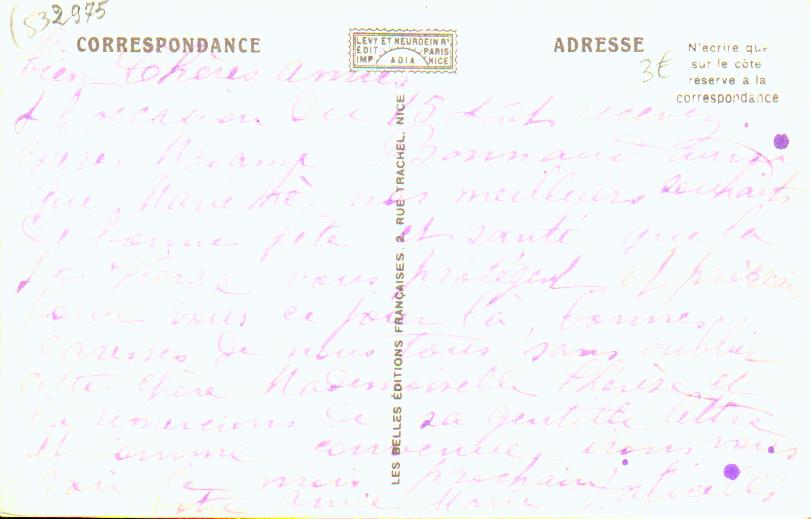 (S32975
CORRESPONDANCE
LEVY ET NEURDEIN RÉUNIS
EDIT PARIS
IMP ADIA NICE
ADRESSE
N'écrire que
sur le côté
réservé à la
correspondance
3€
LES BELLES ÉDITIONS FRANÇAISES. 2, RUE TRACHEL. NICE
bien Chères amies
A l'occasion du 15 Août recevez
chères Madame Bonnaud
que nos meilleurs souhaits
de bonne fête et santé que la
Ste Vierge vous protègent et
pour vous ce jour là, bonnes
caresses de nous tous sans oublier
cette chère Mademoiselle Thérèse et
la remercions de sa gentille lettre
et comme convenue irons vous
voir le mois prochain
Votre Amie Marie